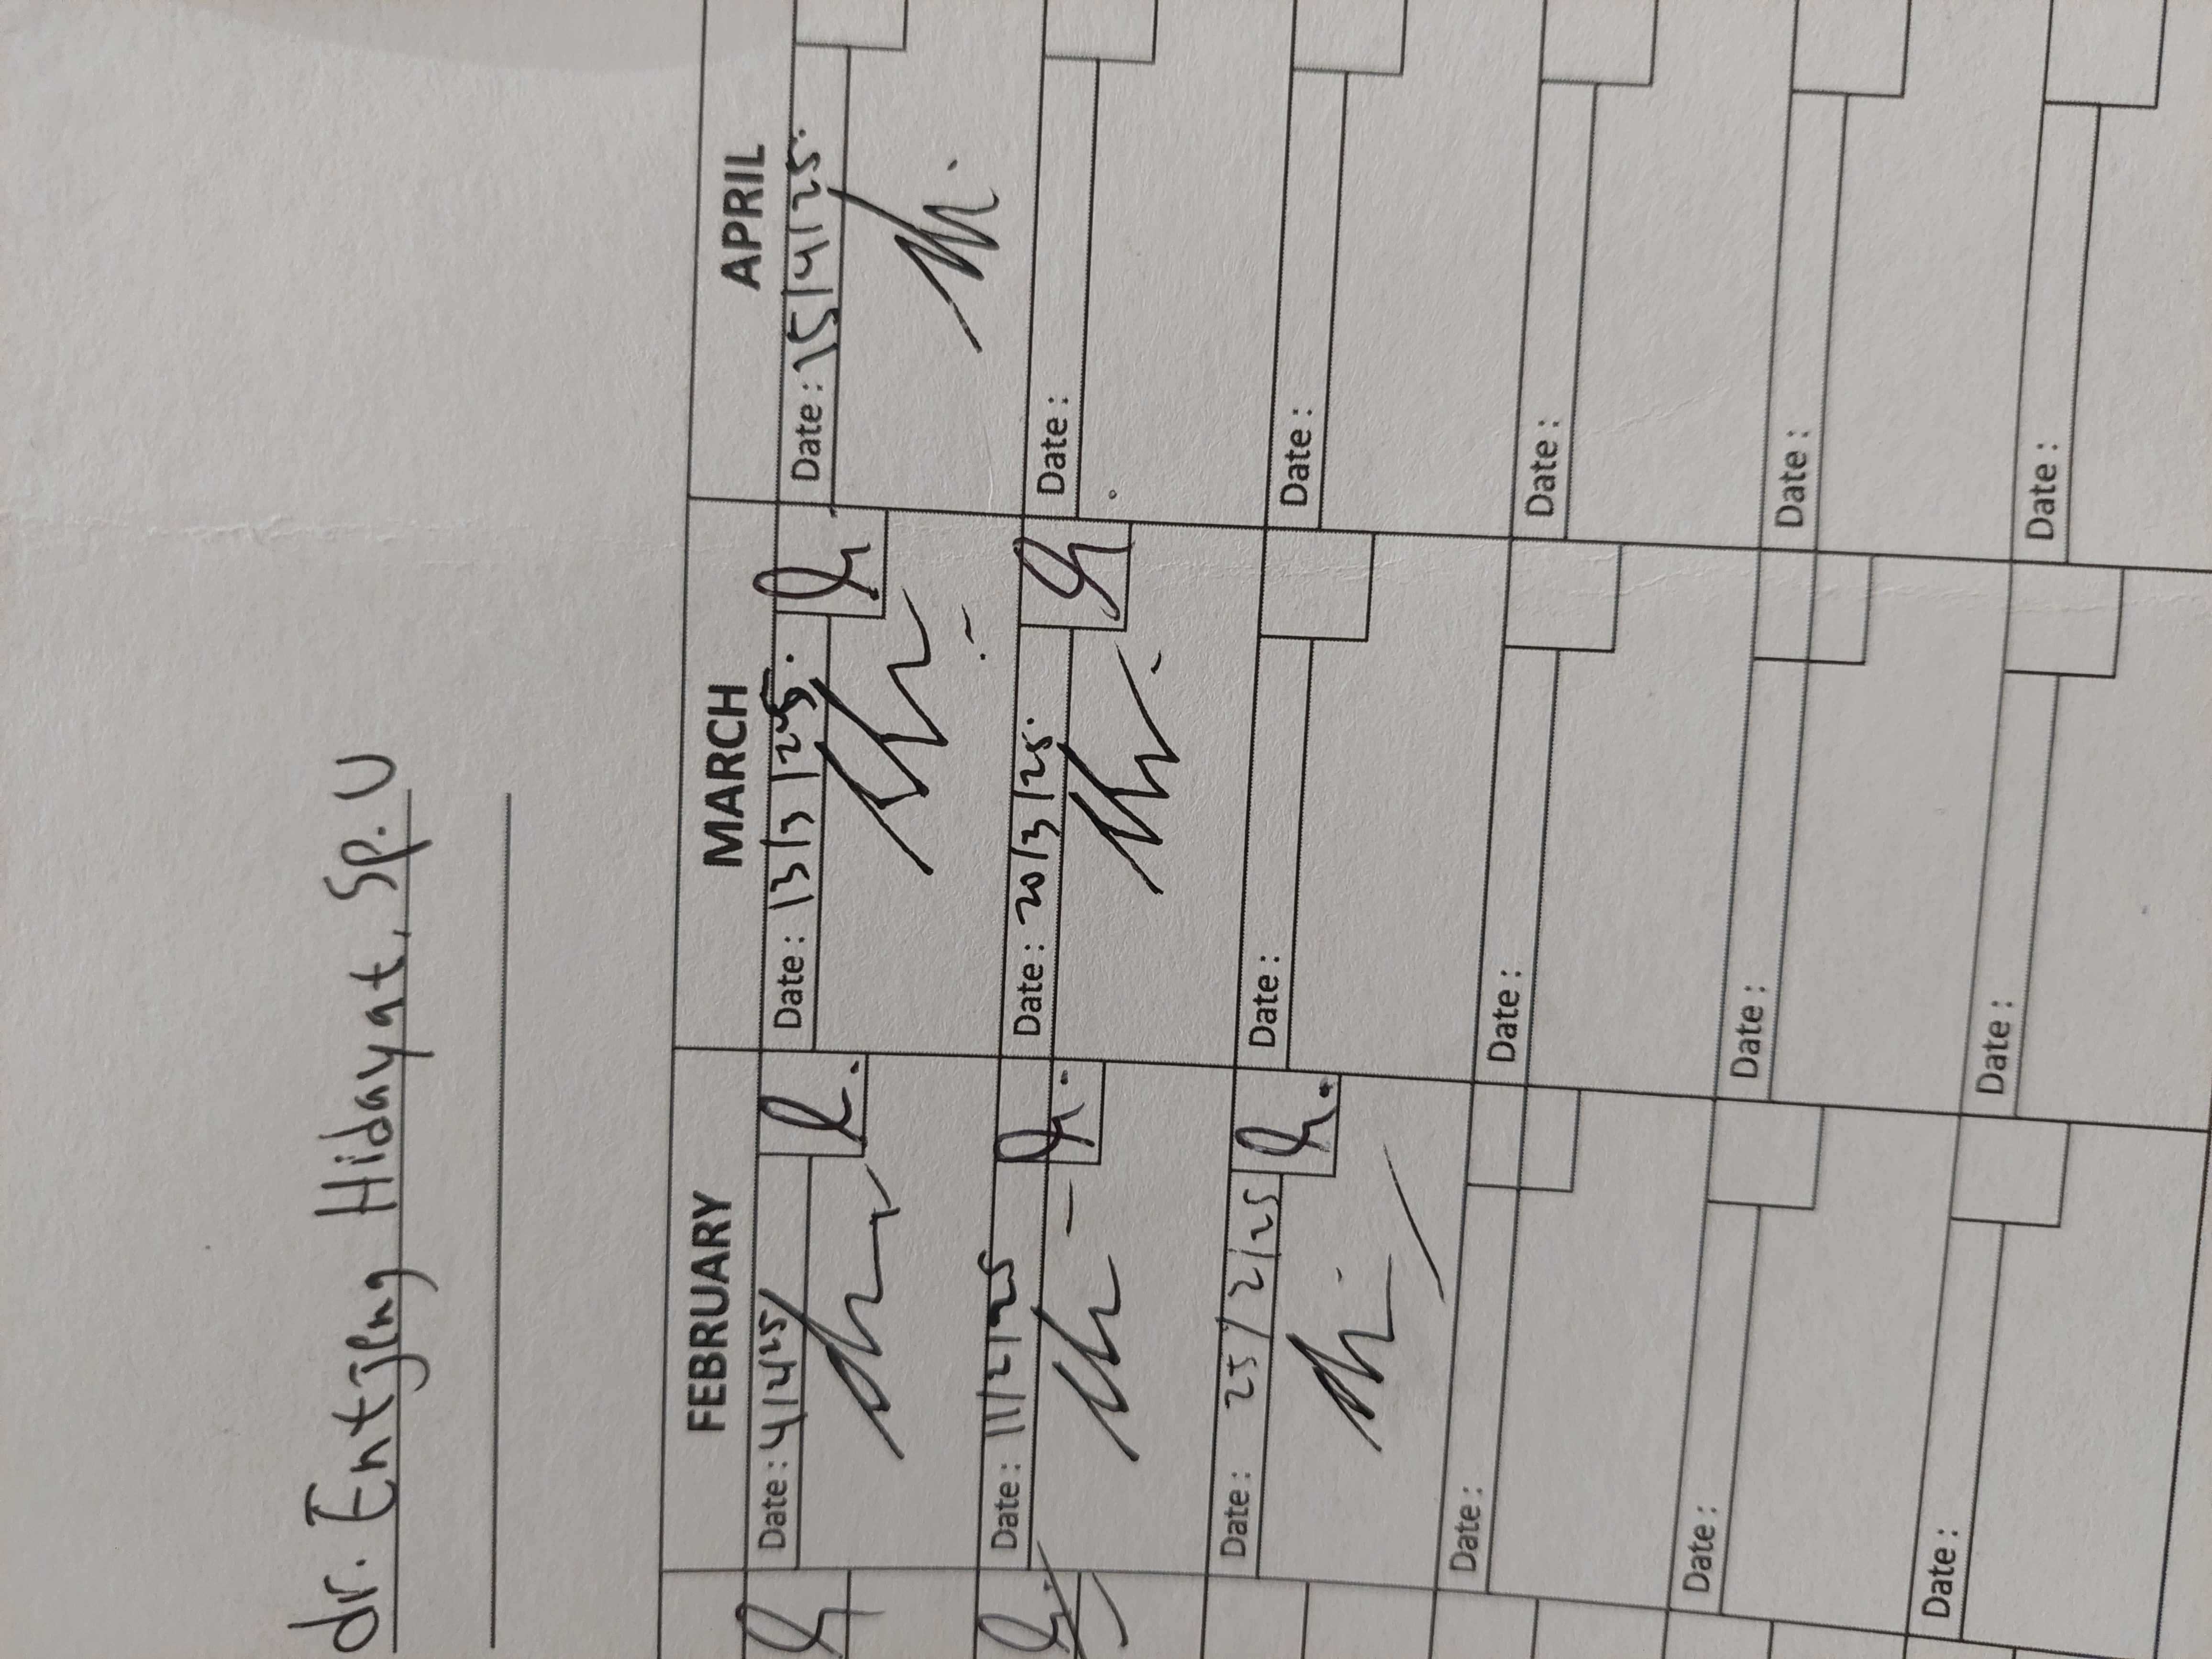 dr. Entjeng Hidayat, Sp. U
FEBRUARY MARCH APRIL
Date : 4/2/25 Date : 13/3/25. Date : 15/4/25.
Date : 11/2/25 Date : 20/3/25. Date :
Date : 25/2/25 Date : Date :
Date : Date : Date :
Date : Date : Date :
Date : Date : Date :